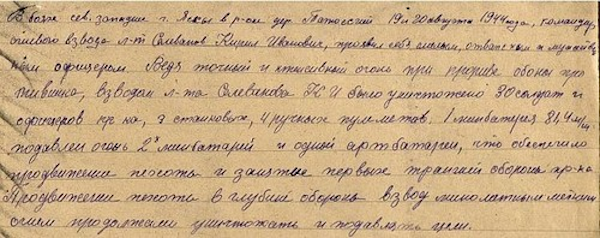 В боях сев. западнее г. Яссы в р-оне дер. 19 и 20 августа 1944 года, командир
огневого взвода л-т Селиванов Кирил Иванович, проявил себя смелым, отважным и мужествен
ным офицером. Ведя точный и интенсивный огонь при прорыве обороны про
тивника, взводом л-та Селиванова К И было уничтожено 30 солдат и
офицеров пр-ка, 3 станковых, 4 ручных пулеметов, 1 минбатарея 81,4 мм,
подавлен огонь 2х минбатарей и одной артбатареи, что обеспечило
продвижение пехоты и занятие первых траншей обороны пр-ка
Продвижении пехоты в глубине обороны взвод минометным
огнем продолжали уничтожать и подавлять цели.